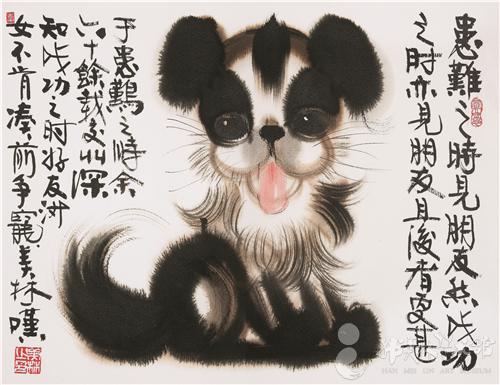 患難之時見朋友然成功
之时亦見朋友且後者更甚
于患難之時余
六十餘载深
知成功之时好友
女不肯凑前争寵美林
HAN MEI LIN ART MUSEUM